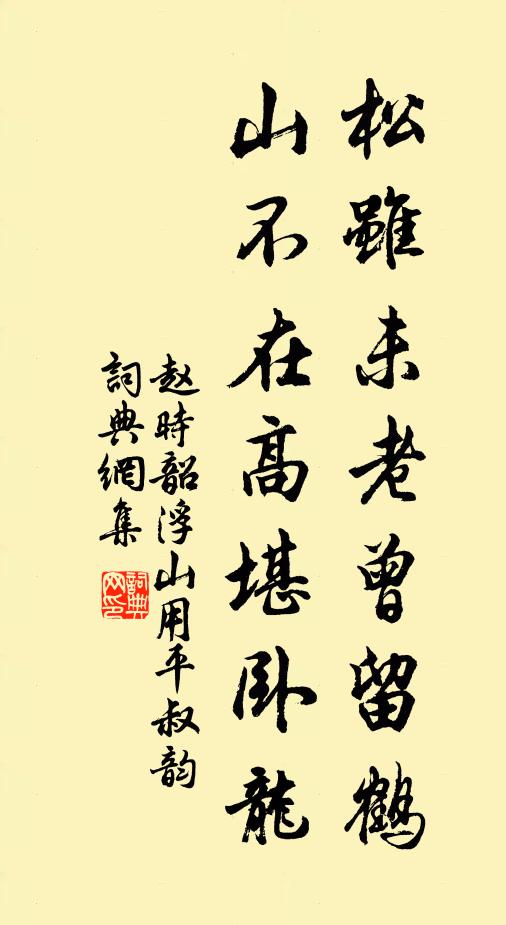 松雖未老曾留鶴
山不在高堪卧龍
赵時韶浮山用平叔韵
詞典網集
詞典网印